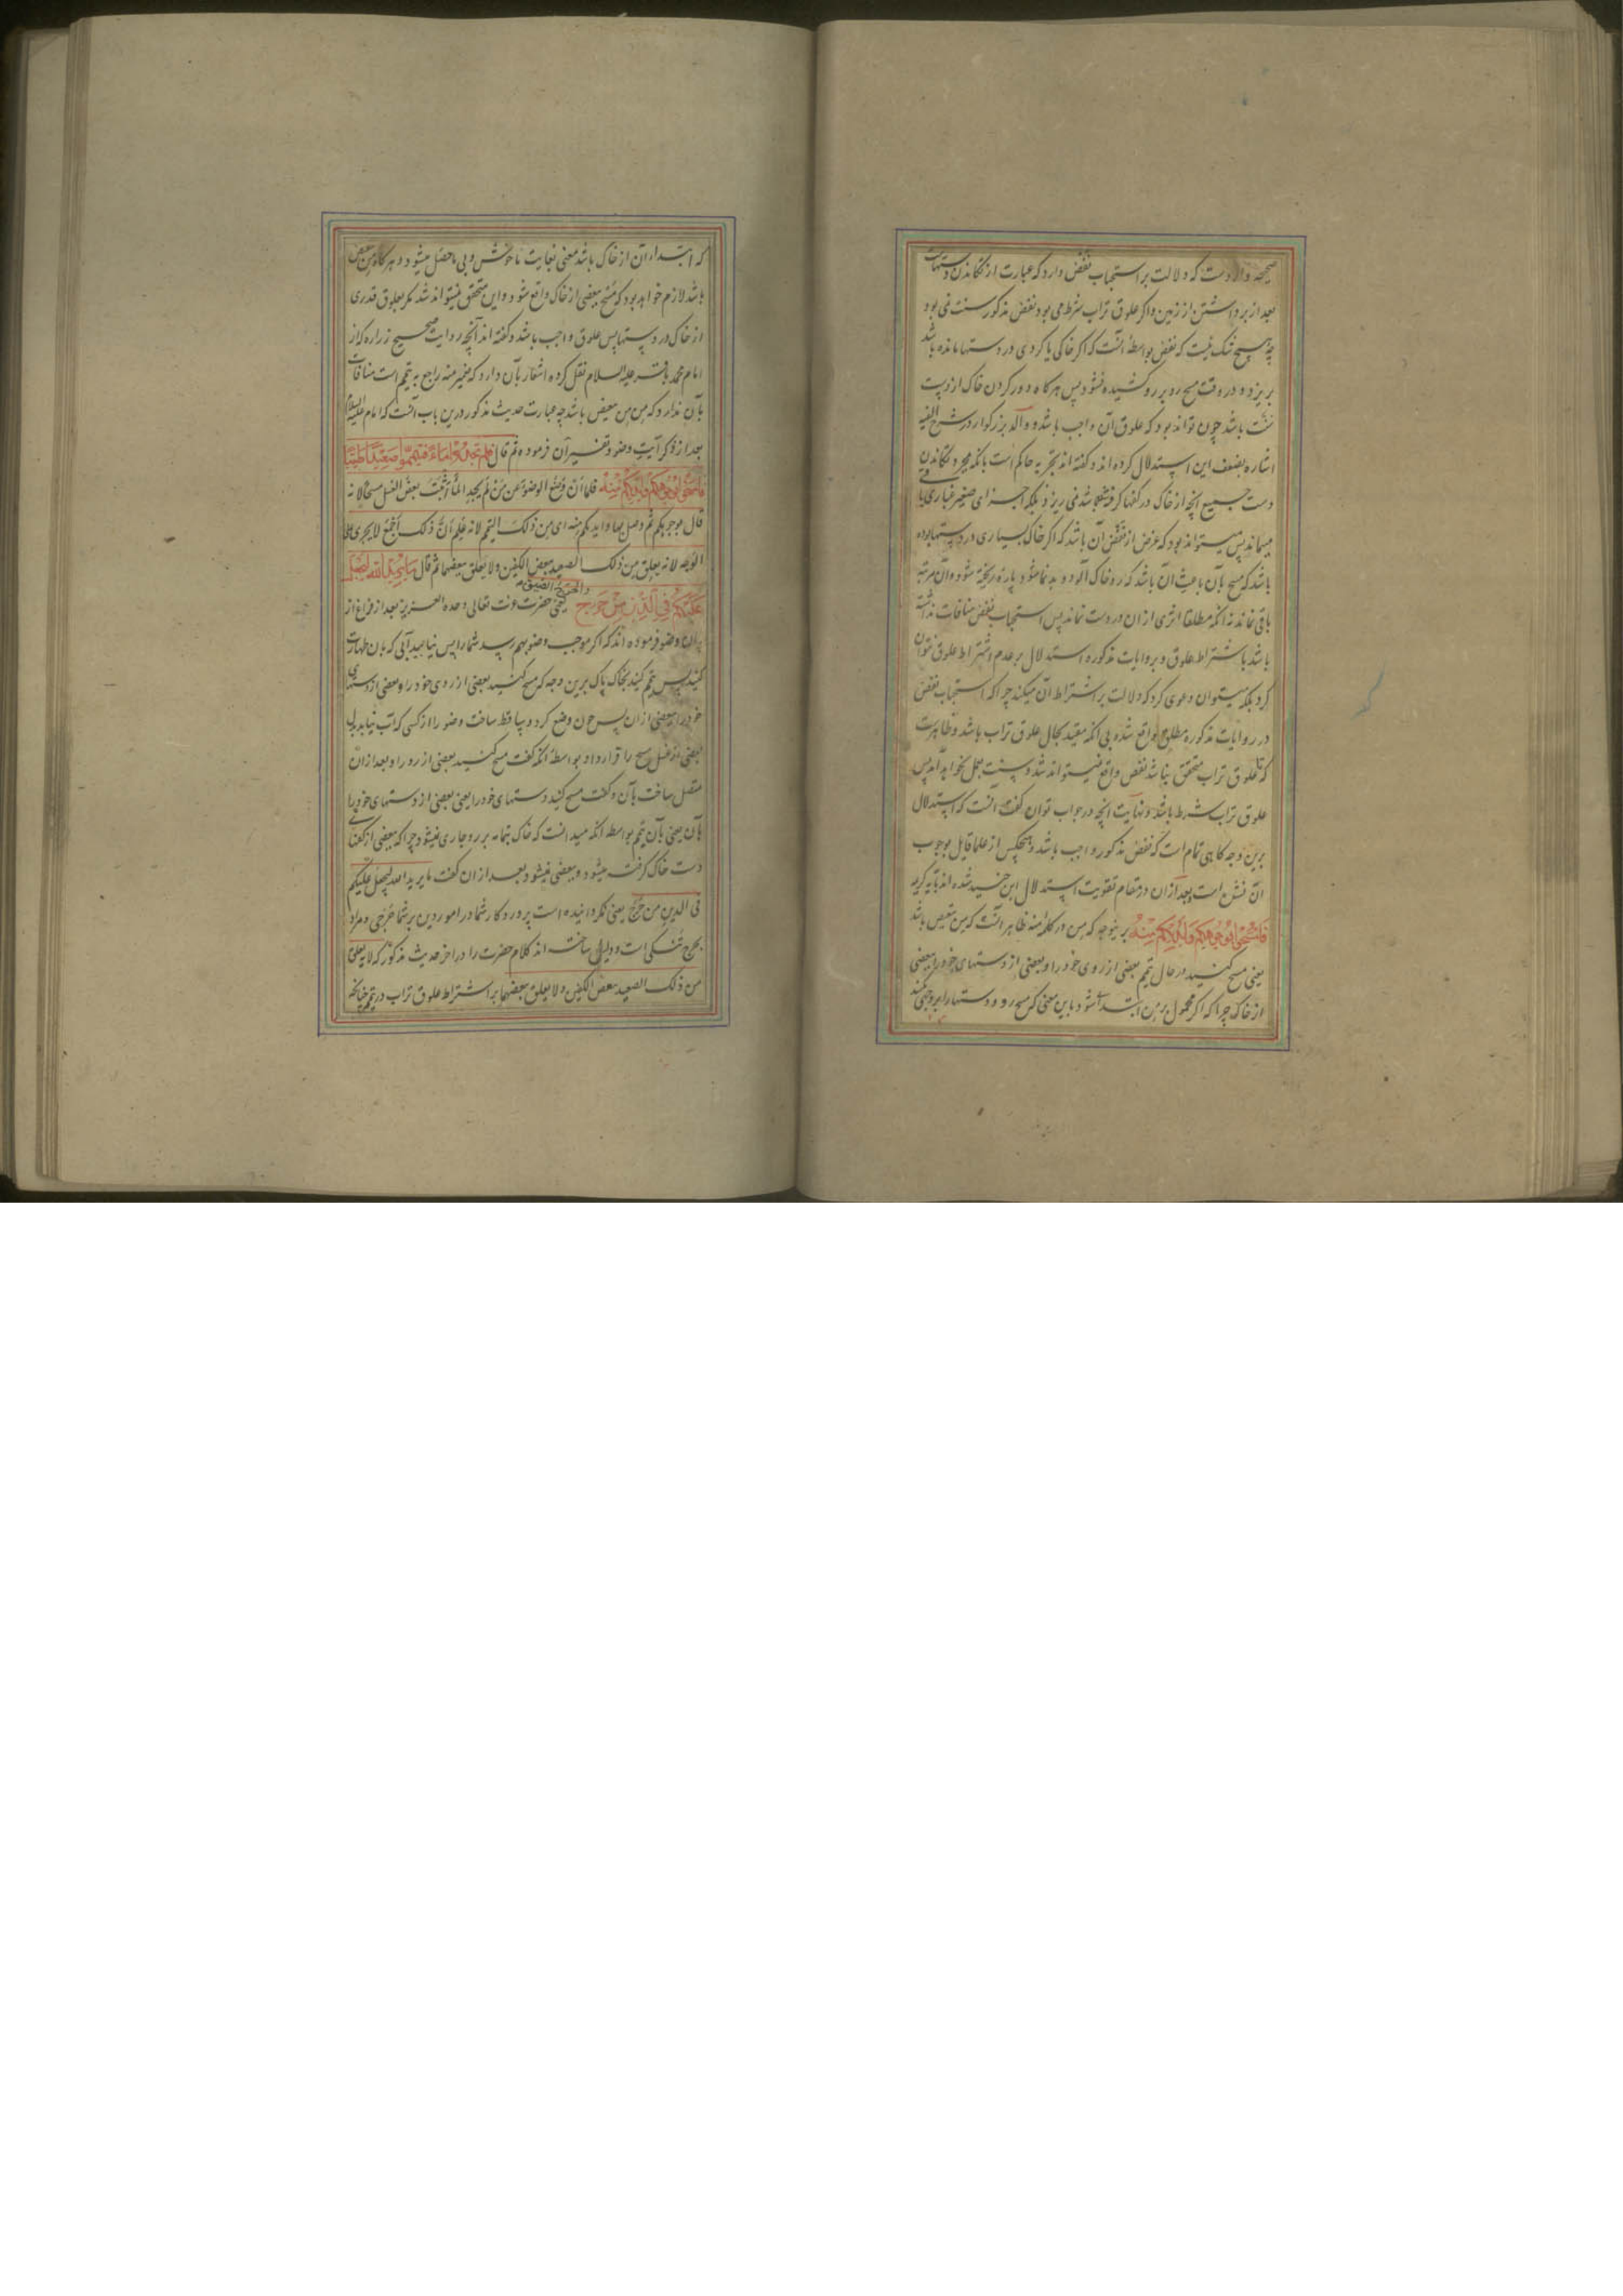 صحیحه وارد است که دلالت بر استحباب نفض دارد که عبارت از تکاندن دستهاست
بعد از برداشتن از زمین و اگر علوق تراب شرط می بود نفض مذکور سنت نمی بود
چه هیچ شک نیست که نفض بواسطه آنست که اگر خاکی یا گردی در دستها مانده باشد
بریزد و در وقت مسح رو بر رو کشیده نشود پس هرگاه دور کردن خاک از دست
سنت باشد چون تواند بود که علوق آن واجب باشد و والد بزرگوار در شرح الفیه
اشاره بضعف این استدلال کرده اند و گفته اند تجربه حاکم است بانکه بمجرد تکاندن
دست جمیع آنچه از خاک در کفها گرفته باشد نمی ریزد بلکه اجزای صغیر غباری
میماند پس میتواند بود که غرض از نفض آن باشد که اگر خاک بسیاری در دستها بوده
باشد که مسح بآن باعث آن باشد که رو خاک آلود و بدنما شود پاره ریخته شود و آن مرتبه
باقی نماند نه آنکه مطلقا اثری از آن در دست نماند پس استحباب نفض منافات نداشته
باشد باشتراط علوق و بروایات مذکوره استدلال بر عدم اشتراط علوق نتوان
کرد بلکه میتوان دعوی کرد که دلالت بر اشتراط آن میکند چرا که استحباب نفض
در روایات مذکوره مطلق واقع شده بی آنکه مقید بحال علوق تراب باشد و ظاهر است
که تا علوق تراب متحقق نباشد نفض واقع نمیتواند شد و سنت بعمل نخواهد آمد پس
علوق تراب شرط باشد و نهایت آنچه در جواب توان گفت آنست که استدلال
برین وجه گاهی تمام است که نفض مذکور واجب باشد و هیچکس از علما قایل بوجوب
آن نشده است و بعد از آن در مقام تقویت استدلال ابن جنید شده اند بآیه کریمه
فامسحوا بوجوهکم وایدیکم منه برینوجه که من در کلمه منه ظاهر آنست که من تبعیض باشد
یعنی مسح کنید در حال تیمم بعضی از روی خود را و بعضی از دستهای خود را ببعضی
از خاک چرا که اگر محمول بر من ابتدا شود باین معنی که مسح رو و دستها را بروجهی کنند
که ابتداء آن از خاک باشد معنی بغایت ناخوش و بی ماحصل میشود و هرگاه من تبعیض
باشد لازم خواهد بود که مسح ببعضی از خاک واقع شود و این متحقق نمیتواند شد مگر بعلوق قدری
از خاک در دستها پس علوق واجب باشد و گفته اند آنچه روایت صحیح زراره که از
امام محمد باقر علیه السلام نقل کرده اشعار بآن دارد که ضمیر منه راجع به تیمم است منافات
بآن ندارد که من من تبعیض باشد چه عبارت حدیث مذکور درین باب آنست که امام علیه السلام
بعد از ذکر آیت وضو و تفسیر آن فرموده ثم قال فلم تجدوا ماء فتیمموا صعیدا طیبا
فامسحوا بوجوهکم وایدیکم منه فلما أن وضع الوضوء عن من لم یجد الماء أثبت بعض الغسل مسحا لانه
قال بوجوهکم ثم وصل بها وایدیکم منه ای من ذلک التیمم لانه علم أن ذلک أجمع لا یجری علی
الوجه لانه یعلق من ذلک الصعید ببعض الکفین ولا یعلق ببعضها ثم قال ما یرید الله لیجعل
علیکم فی الدین من حرج والحرج الضیق یعنی حضرت عزت تعالی وحده العزیز بعد از فراغ از
بیان وضو فرموده اند که اگر موجب وضو بهم رسد شما را پس نیابید آبی که بآن طهارت
کنید پس تیمم کنید بخاک پاک برین وجه که مسح کنید بعضی از روی خود را و بعضی از دستهای
خود را ببعضی از آن پس چون وضع کرد و ساقط ساخت وضو را از کسی که آب نیابد بدل
بعضی از غسل مسح را قرار داد بواسطه آنکه گفت مسح کنید بعضی از رو را و بعد از آن
متصل ساخت بآن و گفت مسح کنید دستهای خود را یعنی بعضی از دستهای خود را
بآن یعنی بآن تیمم بواسطه آنکه میدانست که خاک بتمامه بر رو جاری نمیشود چرا که ببعضی از کفهای
دست خاک گرفته میشود و ببعضی نمیشود بعد از آن گفت ما یرید الله لیجعل علیکم
فی الدین من حرج یعنی نگردانیده است پروردگار شما در امور دین بر شما حرجی و مراد
بحرج تنگی است و دلیل ساخته اند کلام حضرت را در آخر حدیث مذکور که لانه یعلق
من ذلک الصعید ببعض الکفین ولا یعلق ببعضها بر اشتراط علوق تراب در تیمم چنانکه